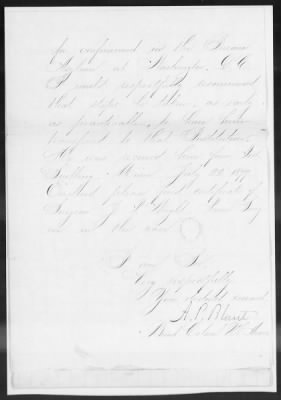 for confinement in the Insane
Asylum at Washington, D.C.
I would respectfully recommend
that steps be taken, as early
as practicable, to have him
transferred to that Institution.
He was received here from Fort
Snelling, Minn. July 22 1877
Enclosed please find certificate of
Surgeon
in this case.
I am Sir,
Very respectfully
Your obedient servant
A. P. Blunt